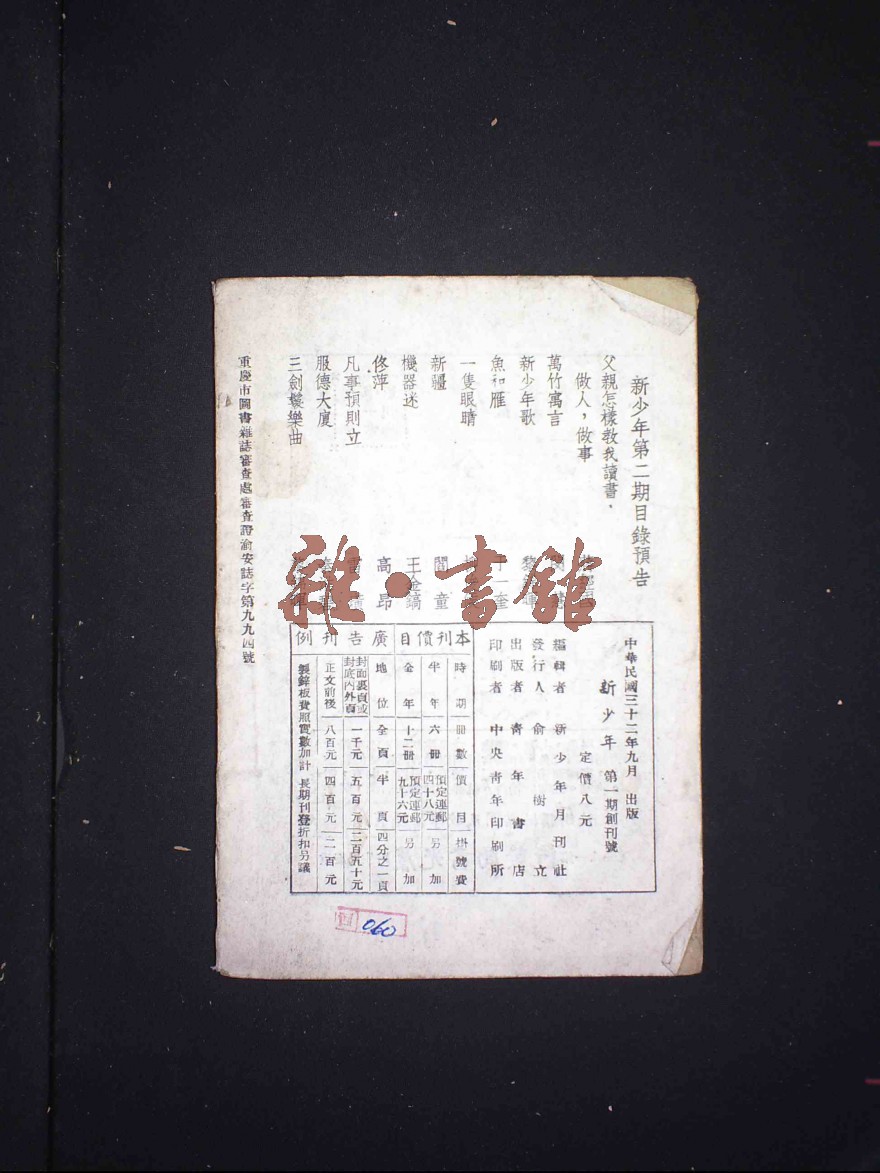 新少年第二期目錄預告
父親怎樣教我讀書．
做人，做事
萬竹寓言
新少年歌
魚和雁
一隻眼睛
新疆 閻童
機器迷 王金鎬
佟萍 高昂
凡事預則立
服德大廈
三劍鬟樂曲
重慶市圖書雜誌審查處審查證渝安誌字第九九四號
雜·書館
中華民國三十二年九月 出版
新少年 第一期創刊號
定價八元
編輯者 新少年月刊社
發行人 俞樹立
出版者 青年書店
印刷者 中央青年印刷所
本刊價目
時期 冊數 價目 掛號費
半年 六冊 預定連郵四十八元 另加
全年 十二冊 預定連郵九十六元 另加
廣告刊例
地位 全頁 半頁 四分之一頁
封面裏頁或封底內外頁 一千元 五百元 二百五十元
正文前後 八百元 四百元 二百元
製鋅板費照實數加計 長期刊登折扣另議
060